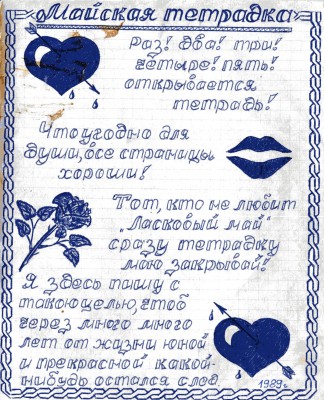 «Майская тетрадка»
Раз! Два! Три!
Четыре! Пять!
открывается
тетрадь!
Что угодно для
души, все страницы
хороши!
Тот, кто не любит
"Ласковый май"
сразу тетрадку
мою закрывай!
Я здесь пишу с
такою целью, чтоб
через много много
лет от жизни юной
и прекрасной какой-
нибудь остался след
1989г.